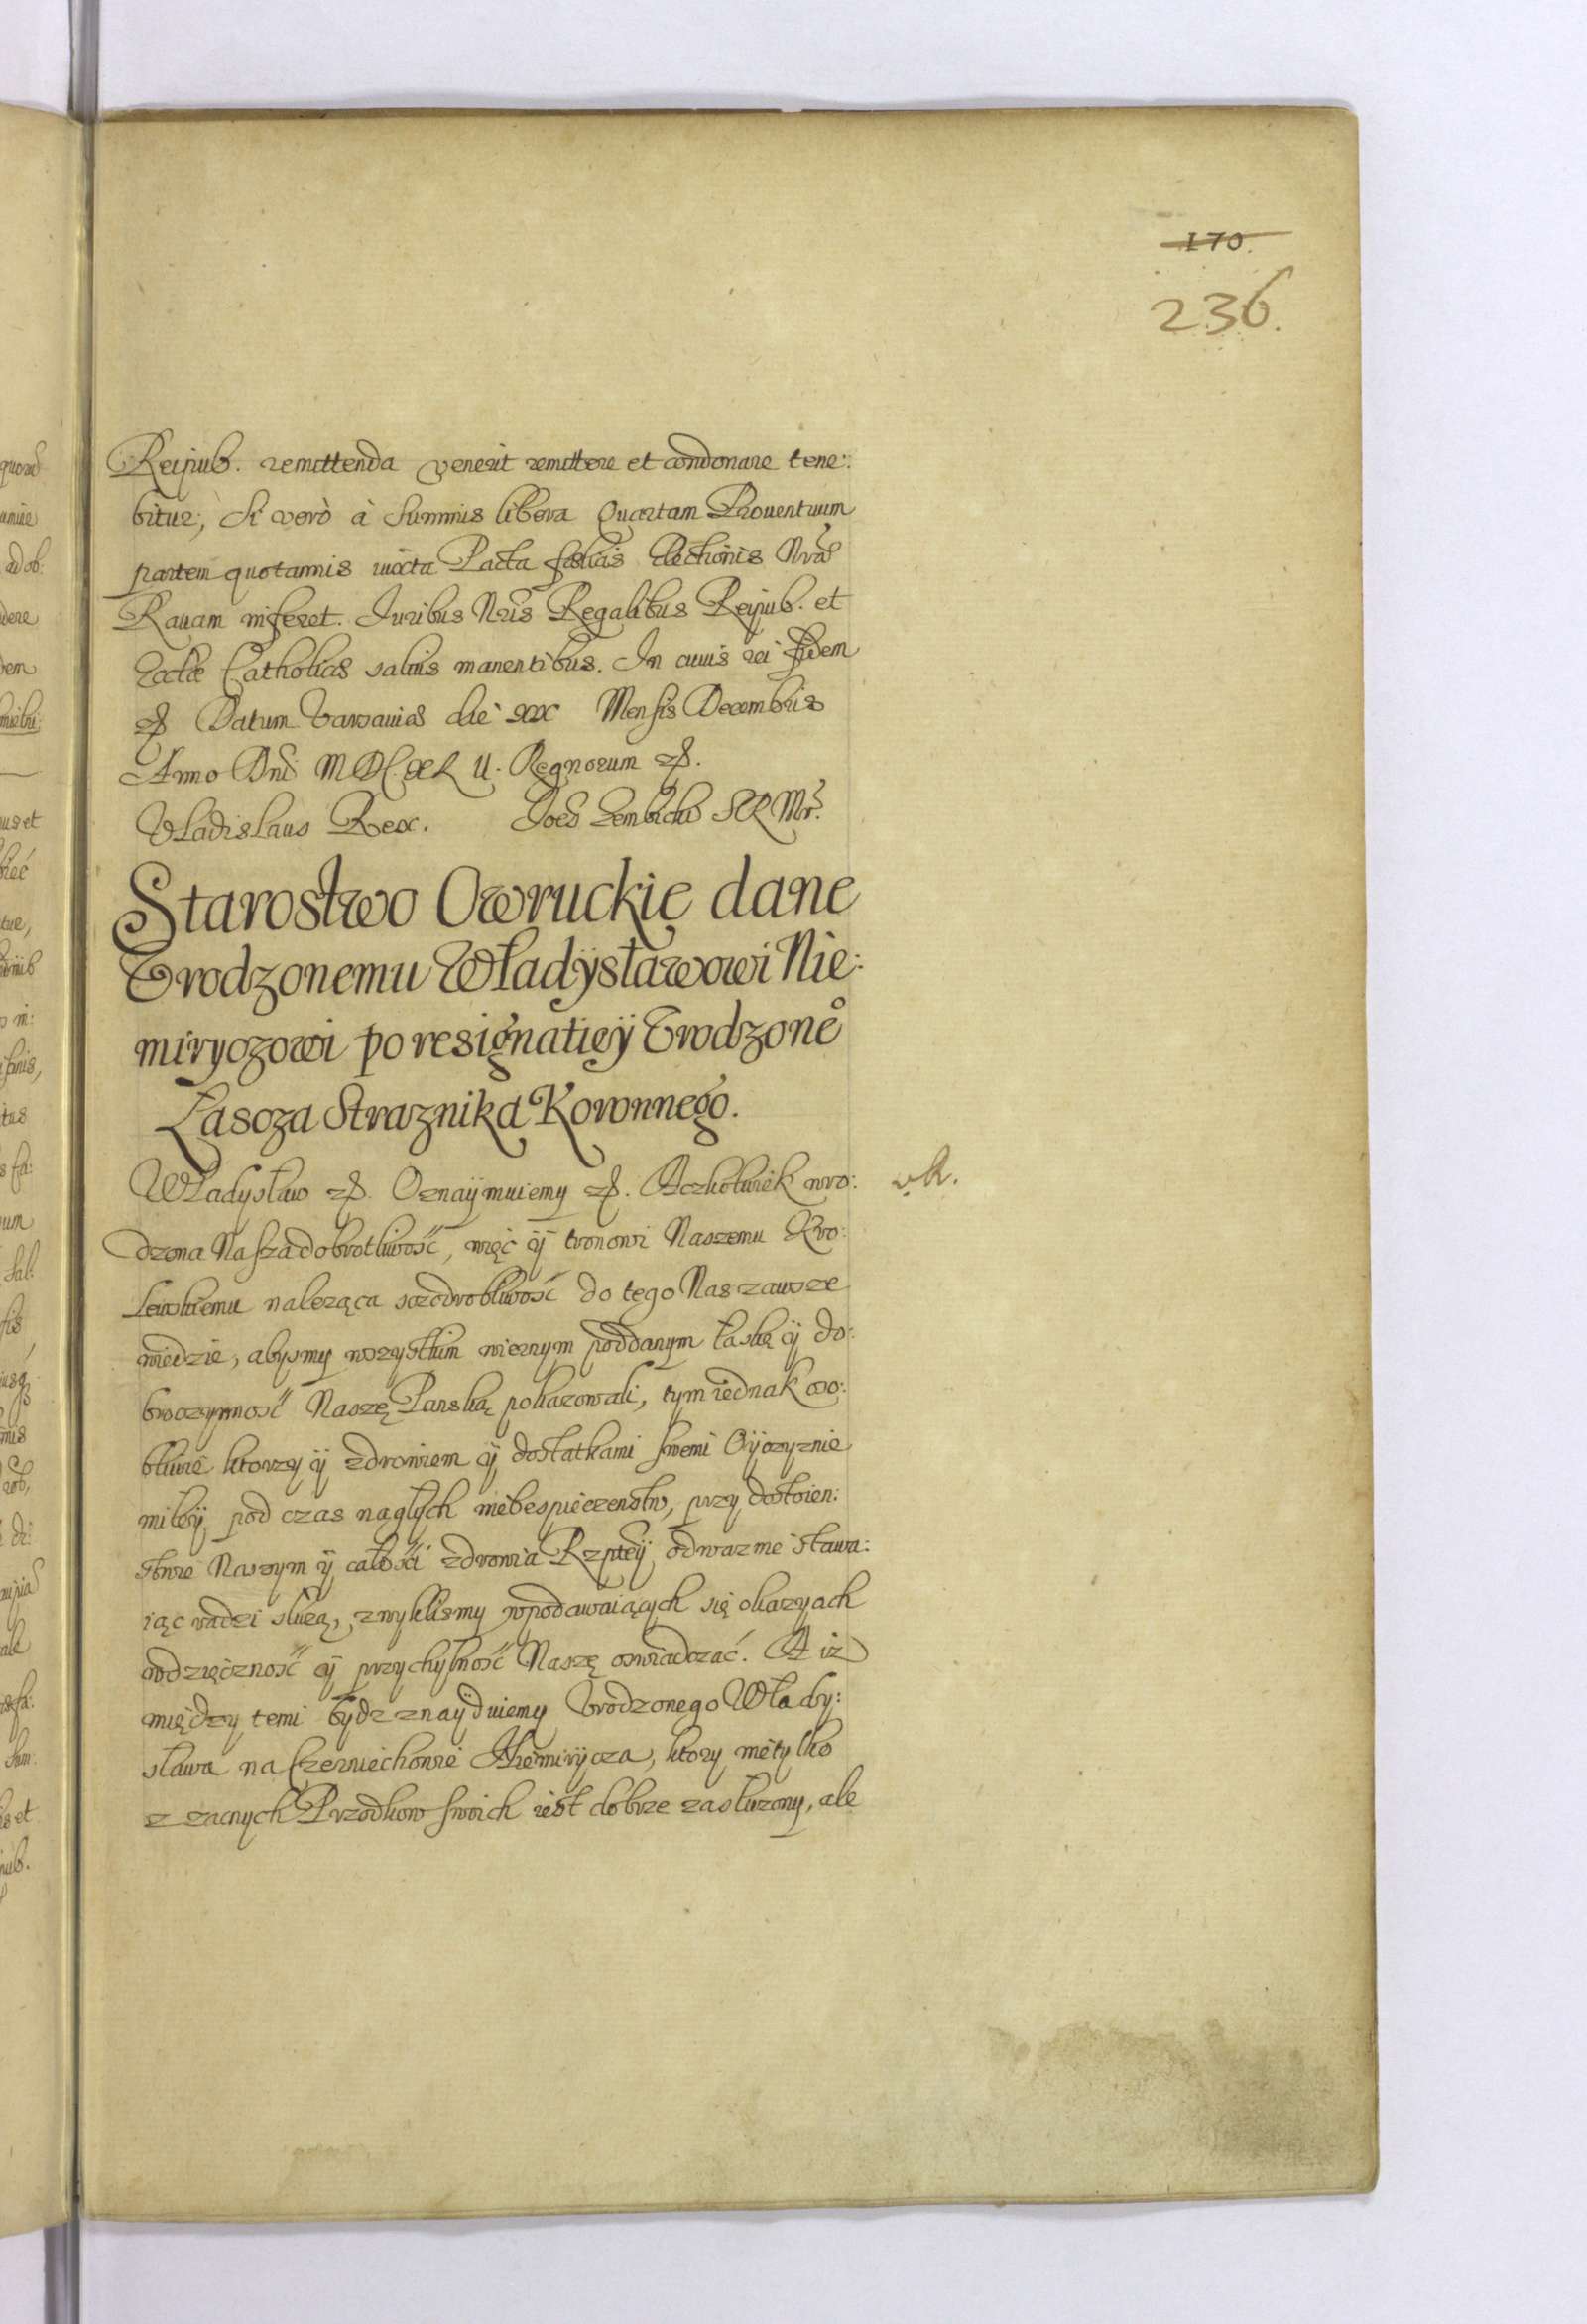 170.
236.
Reipub. remittenda venerit remittere et condonare tene:
bitur; Si verò à Summis libera Quartam Prouentuum
partem quotannis iuxta Pacta fælicis Electionis Nræ
Rauam inferet. Iuribus Nris Regalibus Reipub. et
Ecclæ Catholicæ saluis manentibus. In cuius rei fidem
Datum Varsauiæ die XIX Mensis Decembris
Anno Dni MDCXLII. Regnorum
Vladislaus Rex. Joes SRMr.
Starostwo Owruckie dane
Vrodzonemu Władÿsławowi Nie:
miryczowi po resignatieÿ Vrodzone°
Łasoza Straznika Koronnego.
Władysław Oznaÿmuiemy Aczkolwiek wro:
v.k.
dzona Nasza dobrotliwość, więc ÿ tronowi Naszemu Kro:
lewskiemu naleząca szczodrobliwość do tego Nas zawsze
wiedzie, abysmy wszystkim wiernym poddanym łaskę ÿ do:
broczynność Naszę Panską pokazowali, tym iednak oso:
bliwie ktorzy ÿ zdrowiem ÿ dostatkami swemi Oÿczyznie
miłeÿ pod czas nagłych niebespieczenstw, przy dostoien:
stwie Naszym ÿ całości zdrowia Rzpteÿ odwaznie stawa:
iąc radzi słuzą, zwyklismy wpodawaiących się okazyach
wdzięczność ÿ przychylność Naszę oswiadczać. A iż
między temi bydz znaÿduiemy Vrodzonego Włady:
sława na Czerniechowie Niemirÿcza, ktory nietylko
z zacnych Przodkow swoich iest dobrze zasłuzony, ale